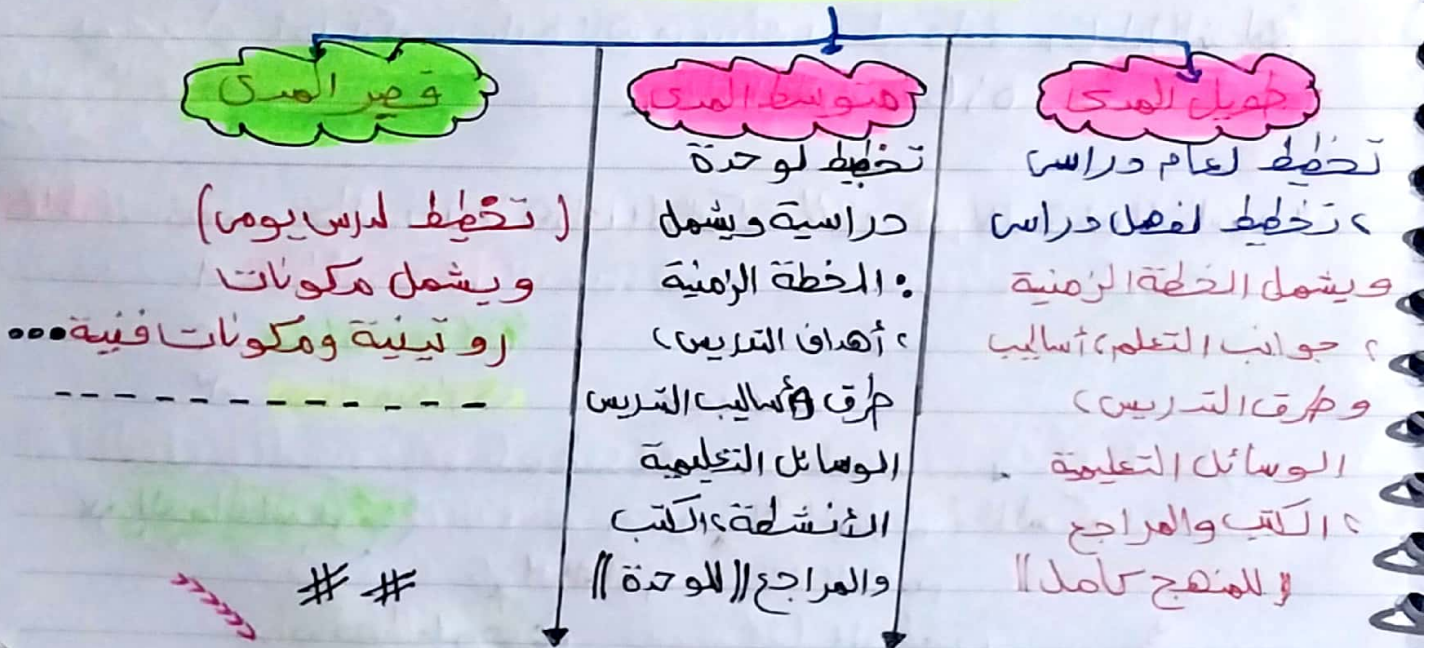 طويل المدى
تخطيط لعام دراسى
، تخطيط لفصل دراسى
ويشمل الخطة الزمنية
، جوانب التعلم، أساليب
وطرق التدريس،
الوسائل التعليمية
، الكتب والمراجع
((للمنهج كامل))
متوسط المدى
تخطيط لوحدة
دراسية ويشمل
: الخطة الزمنية
، أهداف التدريس،
طرق وأساليب التدريس
الوسائل التعليمية
الأنشطة، الكتب
والمراجع ((للوحدة))
قصير المدى
(تخطيط لدرس يومى)
ويشمل مكونات
روتينية ومكونات فنية...
# #